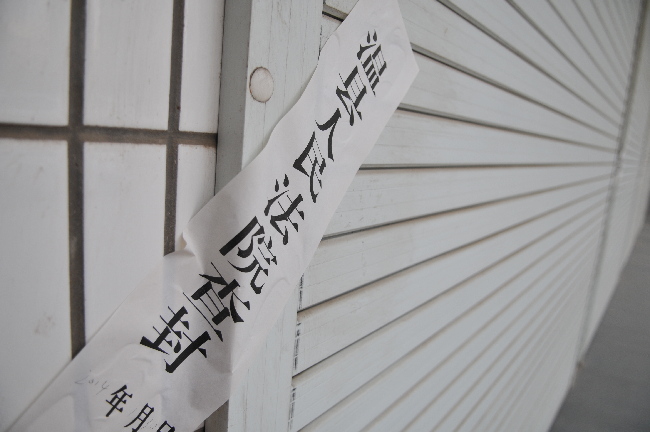 温县人民法院查封
2014年月日